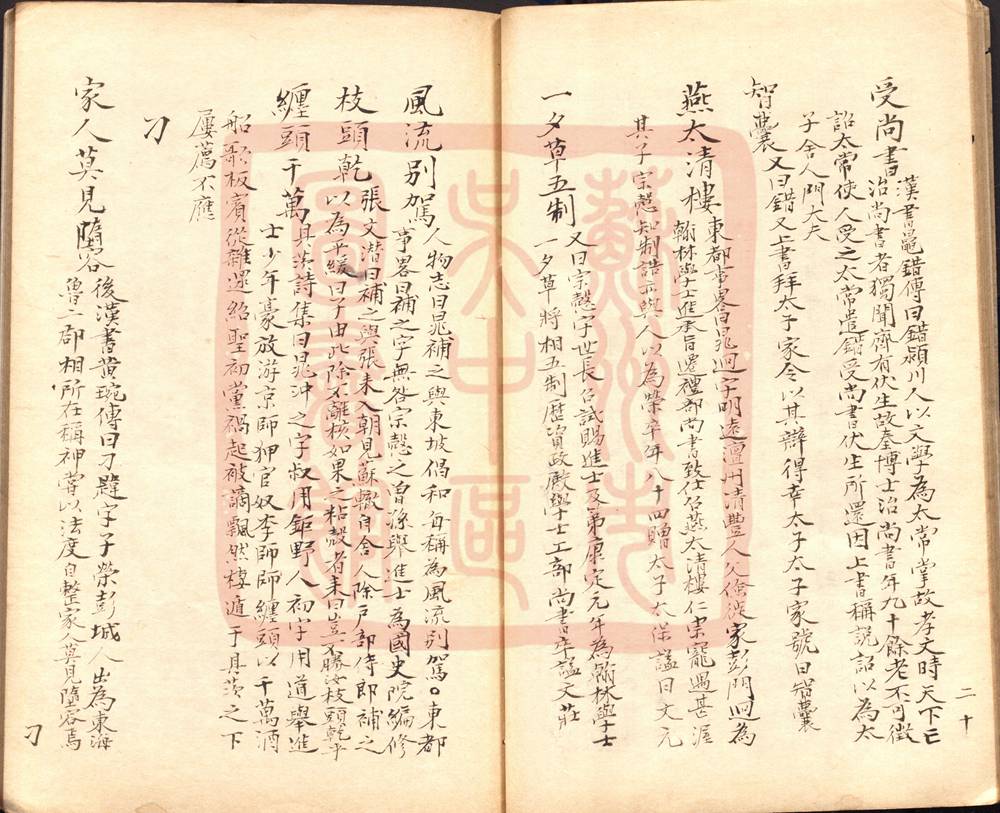 受尚書 漢書鼂錯傳曰錯潁川人以文學為太常掌故孝文時天下亡
治尚書者獨聞齊有伏生故秦博士治尚書年九十餘老不可徵
詔太常使人受之太常遣錯受尚書伏生所還因上書稱說詔以為太
子舍人門大夫
智囊 又曰錯又上書拜太子家令以其辯得幸太子太子家號曰智囊
燕太清樓 東都事畧曰晁迥字明遠澶州清豐人父佺徙家彭門迥為
翰林學士進承旨遷禮部尚書致仕召燕太清樓仁宗寵遇甚渥
其子宗慤知制誥亦與人以為榮卒年八十四贈太子太保謚曰文元
一夕草五制 又曰宗慤字世長召試賜進士及第康定元年為翰林學士
一夕草將相五制歷資政殿學士工部尚書卒謚文莊
二十
風流別駕 人物志曰晁補之與東坡倡和每稱為風流別駕○東都
事畧曰補之字無咎宗慤之曾孫舉進士為國史院編修
枝頭乾 張文潛曰補之與張耒入朝見蘇轍自舍人除戶部侍郎補之
以為平緩曰子由此除不離核如果之粘殼者耒曰豈不勝汝枝頭乾乎
纏頭千萬 具茨詩集曰晁沖之字叔用鉅野人初字用道舉進
士少年豪放游京師狎官奴李師師纏頭以千萬酒
船歌板賓從雜遝紹聖初黨禍起被謫飄然棲遁于具茨之下
屢薦不應
刁
家人莫見墮容 後漢書黄琬傳曰刁韙字子榮彭城人出為東海
魯二郡相所在稱神 以法度自整家人莫見墮容焉
刁
蘇州市
吳中區